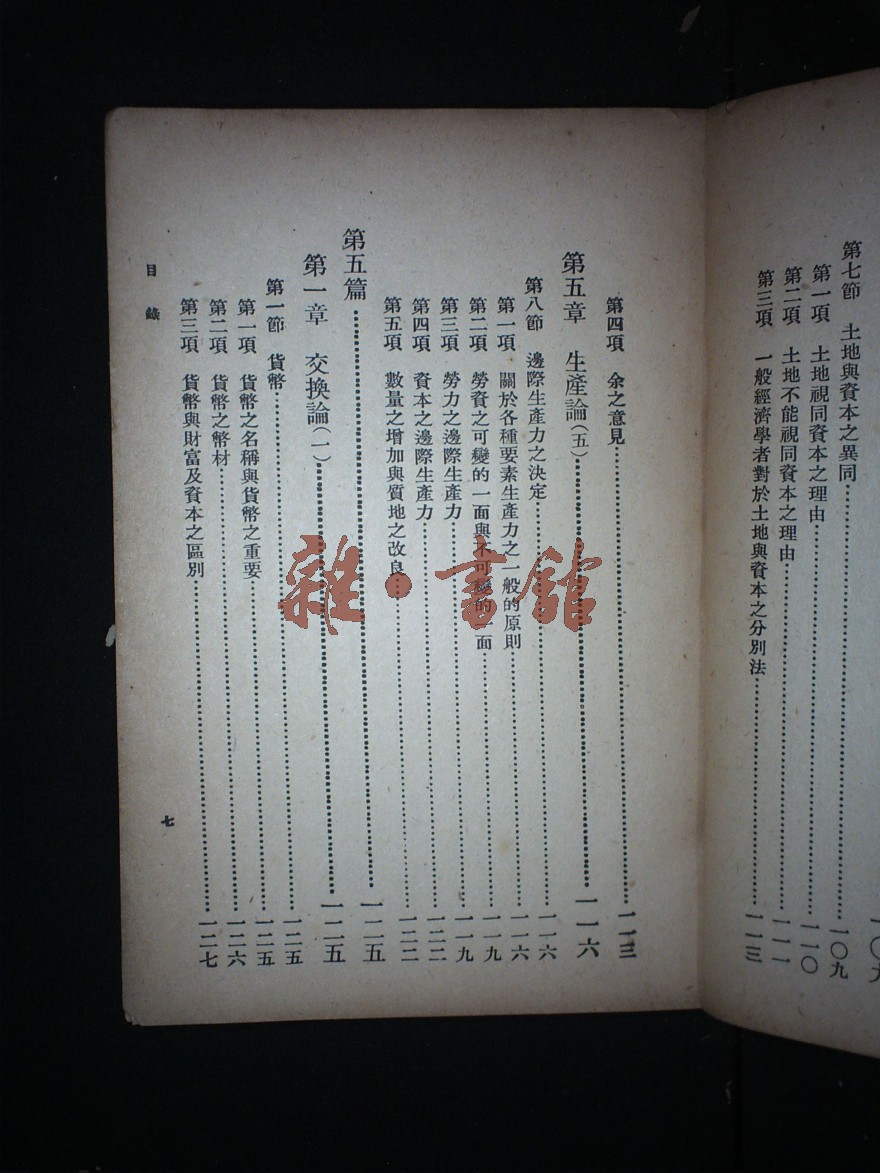 第七節　土地與資本之異同……一〇九
第一項　土地視同資本之理由……一一〇
第二項　土地不能視同資本之理由……一一一
第三項　一般經濟學者對於土地與資本之分別法……一一三
第四項　余之意見……一一三
第五章　生產論（五）……一一六
第八節　邊際生產力之決定……一一六
第一項　關於各種要素生產力之一般的原則……一一六
第二項　勞資之可變的一面與不可變的一面……一一九
第三項　勞力之邊際生產力……一一九
第四項　資本之邊際生產力……一二二
第五項　數量之增加與質地之改良……一二二
第五篇……一二五
第一章　交換論（一）……一二五
第一節　貨幣……一二五
第一項　貨幣之名稱與貨幣之重要……一二五
第二項　貨幣之幣材……一二六
第三項　貨幣與財富及資本之區別……一二七
目錄
七
雜·書館